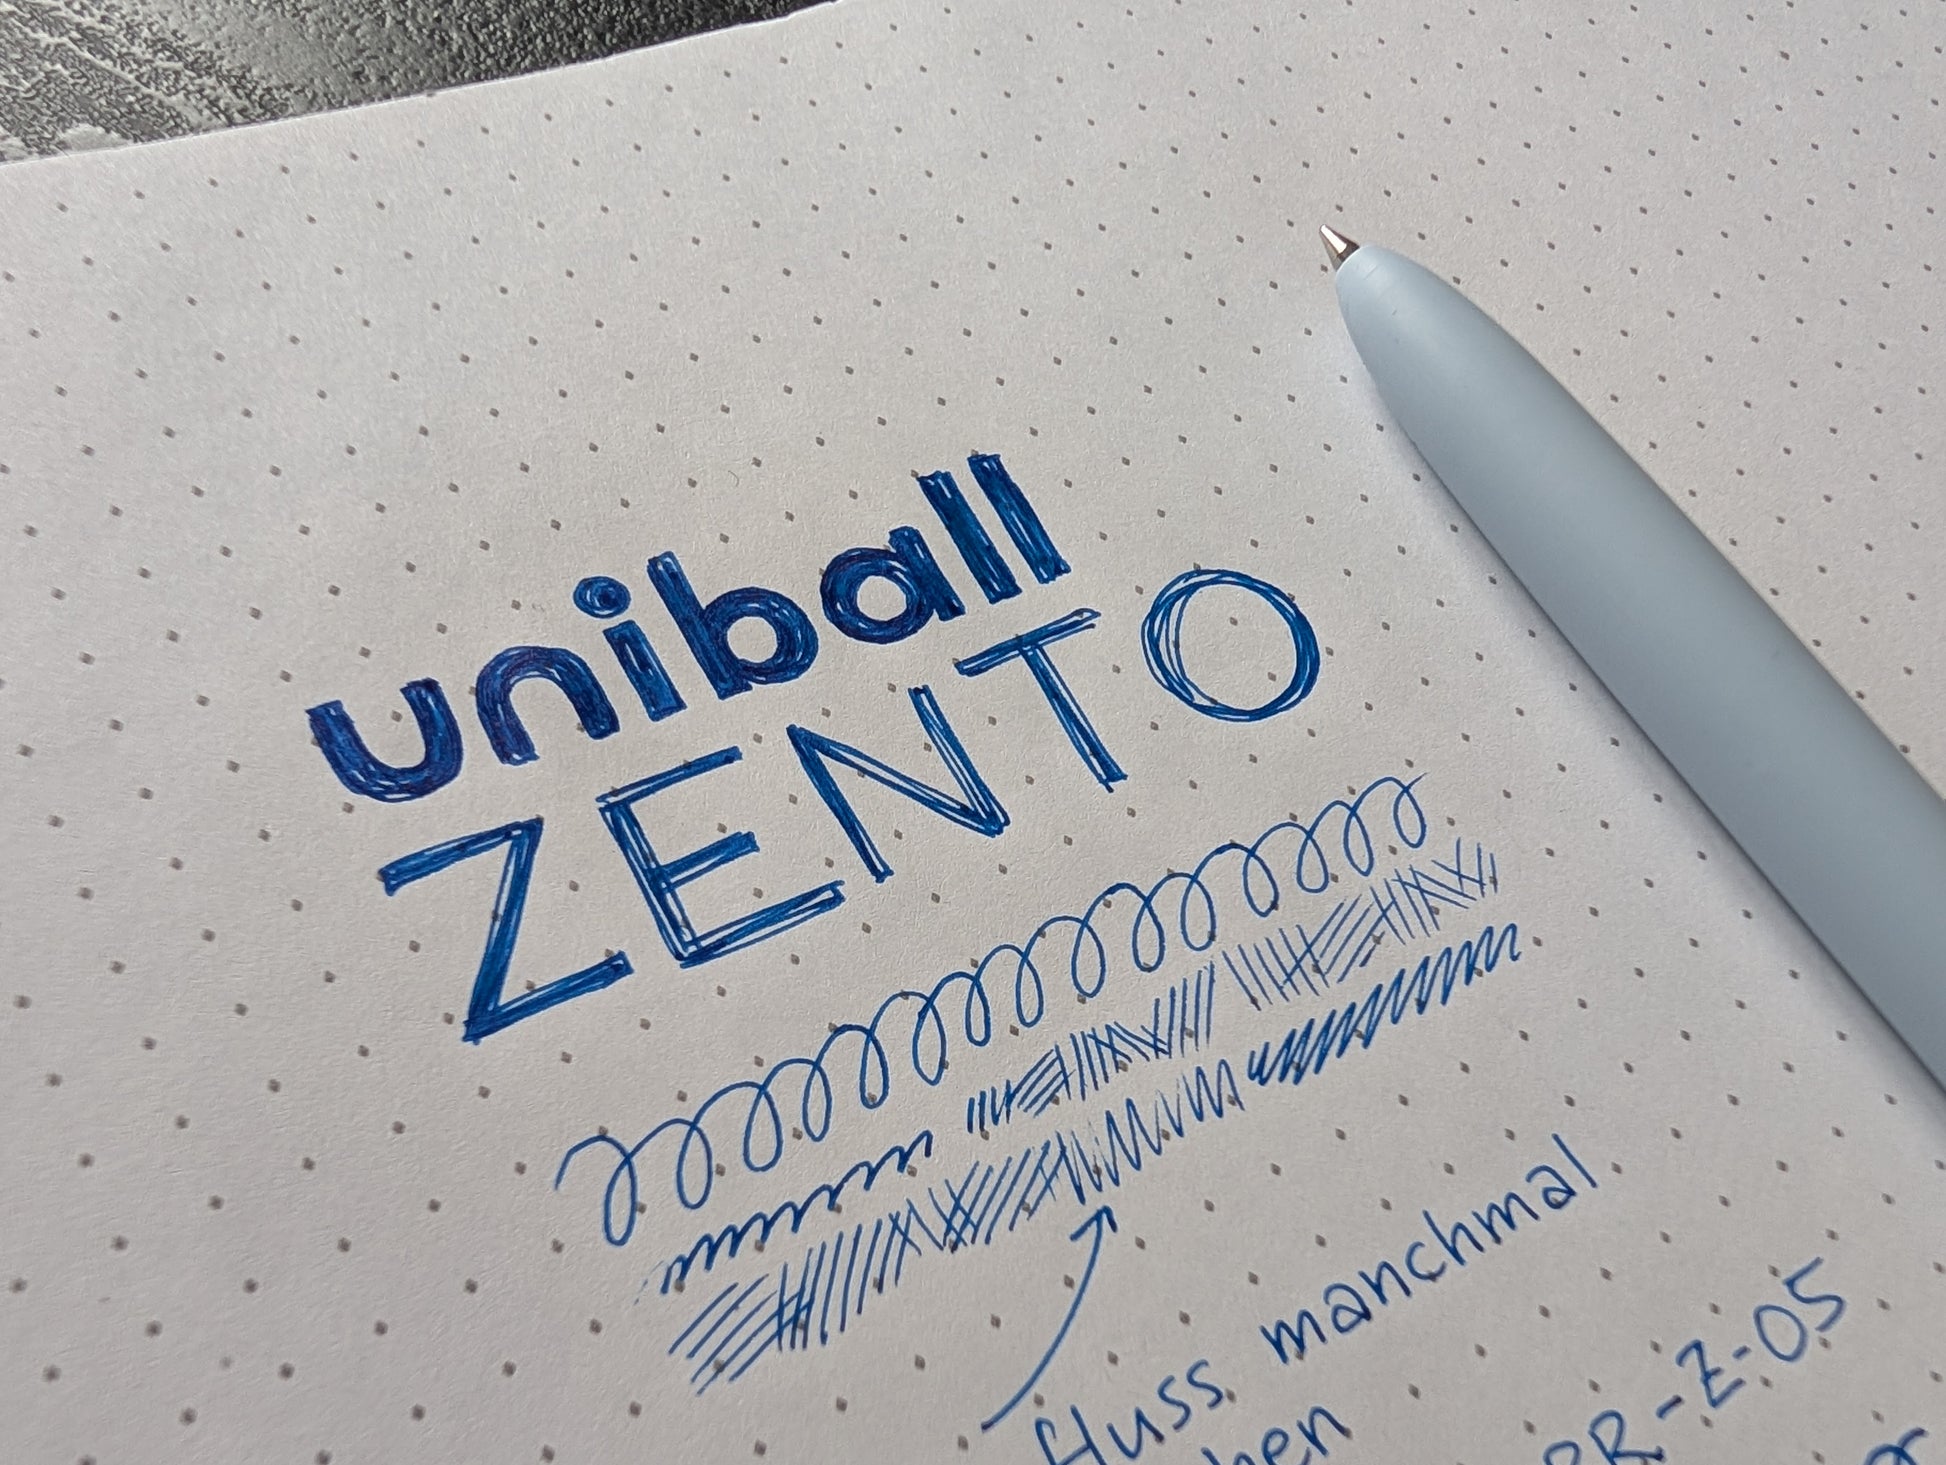 uniball
ZENTO
fluss manchmal
RR-Z-05